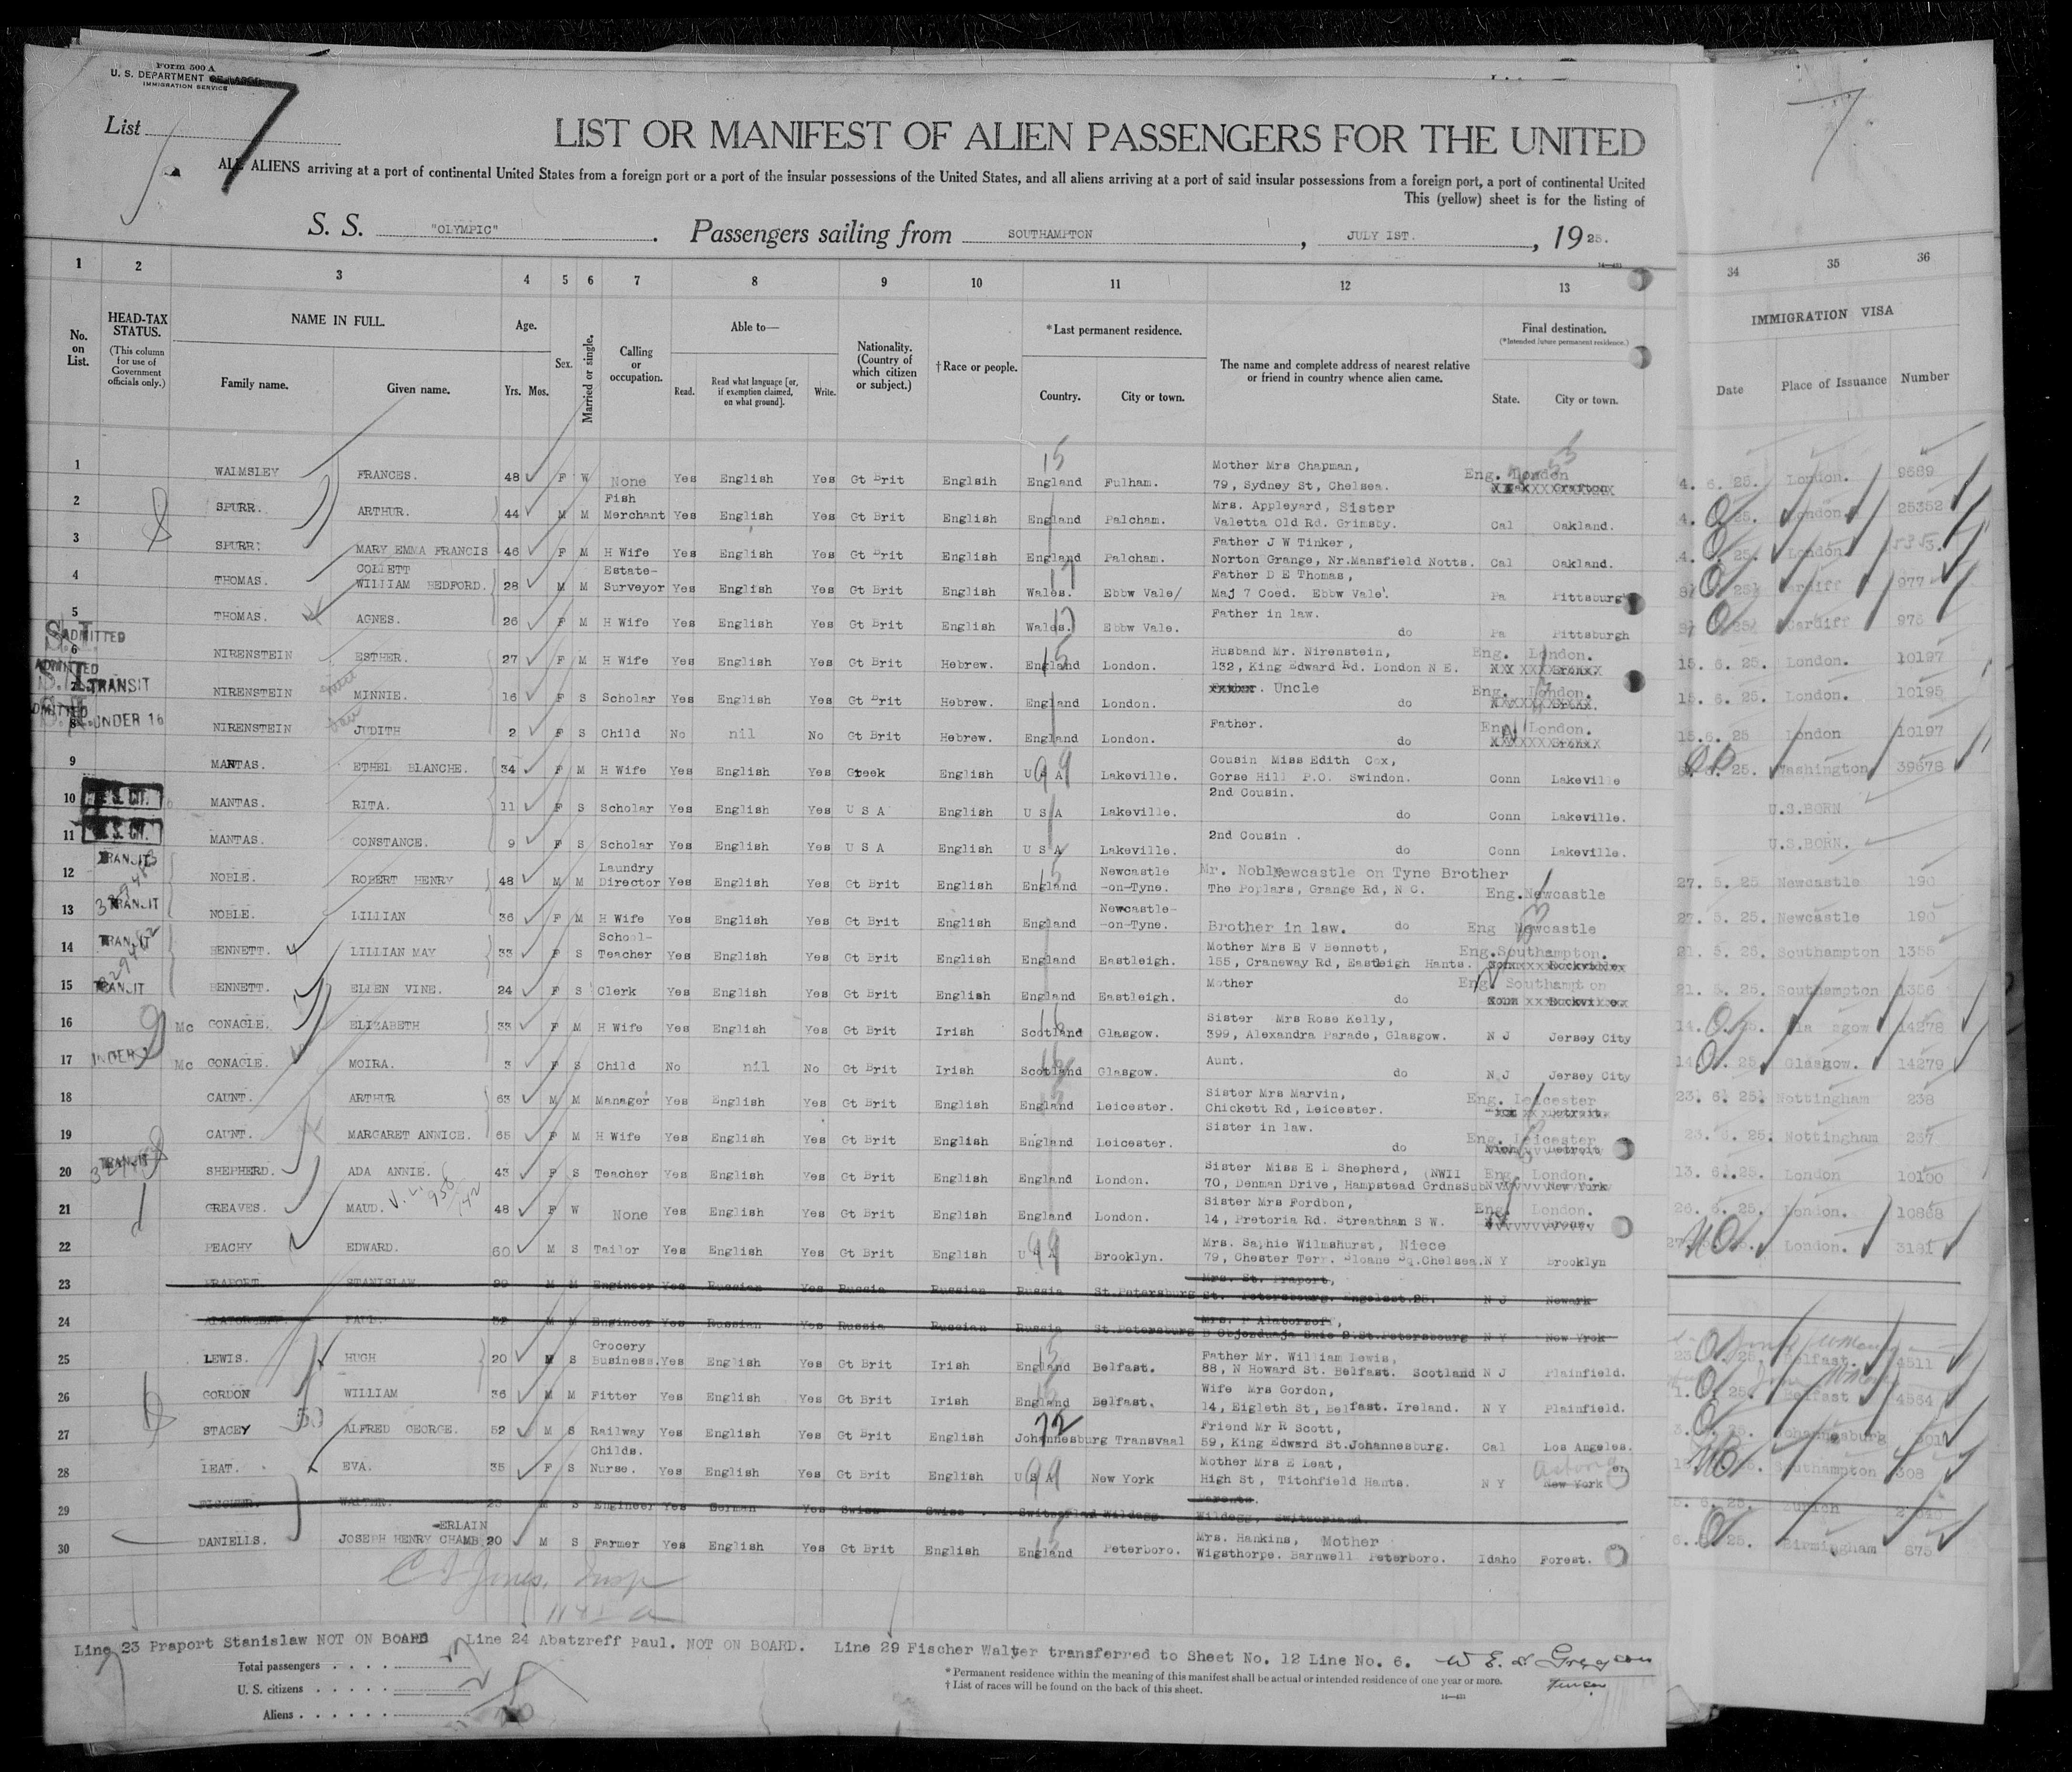 Form 500 A
U. S. DEPARTMENT OF LABOR
IMMIGRATION SERVICE
7
7
List
LIST OR MANIFEST OF ALIEN PASSENGERS FOR THE UNITED
ALL ALIENS arriving at a port of continental United States from a foreign port or a port of the insular possessions of the United States, and all aliens arriving at a port of said insular possessions from a foreign port, a port of continental United
This (yellow) sheet is for the listing of
S. S. "OLYMPIC". Passengers sailing from SOUTHAMPTON, JULY 1ST., 1925.
1 2 3 4 5 6 7 8 9 10 11 12 13 34 35 36
No. on List. HEAD-TAX STATUS. (This column for use of Government officials only.) NAME IN FULL. Family name. Given name. Age. Yrs. Mos. Sex. Married or single. Calling or occupation. Able to— Read. Read what language [or, if exemption claimed, on what ground]. Write. Nationality. (Country of which citizen or subject.) † Race or people. *Last permanent residence. Country. City or town. The name and complete address of nearest relative or friend in country whence alien came. Final destination. (*Intended future permanent residence.) State. City or town. IMMIGRATION VISA Date Place of Issuance Number
1 WALMSLEY FRANCES. 48 F W None Yes English Yes Gt Brit Englsih England Fulham. Mother Mrs Chapman, 79, Sydney St, Chelsea. Eng. London Grafton 4. 6. 25. London. 9689
2 SPURR. ARTHUR. 44 M M Fish Merchant Yes English Yes Gt Brit English England Palcham. Mrs. Appleyard, Sister Valetta Old Rd. Grimsby. Cal Oakland. 4. 25. London. 25352
3 SPURR. MARY EMMA FRANCIS 46 F M H Wife Yes English Yes Gt Brit English England Palcham. Father J W Tinker, Norton Grange, Nr.Mansfield Notts. Cal Oakland. 4. 25. London
4 THOMAS. COLLETT WILLIAM BEDFORD. 28 M M Estate-Surveyor Yes English Yes Gt Brit English Wales. Ebbw Vale/ Father D E Thomas, Maj 7 Coed. Ebbw Vale. Pa Pittsburgh 25. Cardiff 977
5 THOMAS. AGNES. 26 F M H Wife Yes English Yes Gt Brit English Wales. Ebbw Vale. Father in law. do Pa Pittsburgh 25. Cardiff 976
ADMITTED
6 NIRENSTEIN ESTHER. 27 F M H Wife Yes English Yes Gt Brit Hebrew. England London. Husband Mr. Nirenstein, 132, King Edward Rd. London N E. Eng. London. Bronx 15. 6. 25. London. 10197
ADMITTED TRANSIT
7 NIRENSTEIN MINNIE. 16 F S Scholar Yes English Yes Gt Brit Hebrew. England London. Uncle do Eng. London. Bronx. 15. 6. 25. London. 10195
ADMITTED UNDER 16
8 NIRENSTEIN JUDITH 2 F S Child No nil No Gt Brit Hebrew. England London. Father. do Eng. London. Bronx 15.6. 25 London 10197
9 MANTAS. ETHEL BLANCHE. 34 F M H Wife Yes English Yes Greek English U S A Lakeville. Cousin Miss Edith Cox, Gorse Hill P.O. Swindon. Conn Lakeville 25. Washington 39678
10 U.S. CIT. MANTAS. RITA. 11 F S Scholar Yes English Yes U S A English U S A Lakeville. 2nd Cousin. do Conn Lakeville. U.S.BORN
11 U.S. CIT. MANTAS. CONSTANCE. 9 F S Scholar Yes English Yes U S A English U S A Lakeville. 2nd Cousin . do Conn Lakeville. U.S.BORN.
12 TRANSIT NOBLE. ROBERT HENRY 48 M M Laundry Director Yes English Yes Gt Brit English England Newcastle -on-Tyne. Mr. Noble Newcastle on Tyne Brother The Poplars, Grange Rd, N C. Eng. Newcastle 27. 5. 25 Newcastle 190
13 TRANSIT NOBLE. LILLIAN 36 F M H Wife Yes English Yes Gt Brit English England Newcastle- -on-Tyne. Brother in law. do Eng Newcastle 27. 5. 25. Newcastle 190
14 TRANSIT BENNETT. LILLIAN MAY 33 F S School-Teacher Yes English Yes Gt Brit English England Eastleigh. Mother Mrs E V Bennett, 155, Craneway Rd, Eastleigh Hants. Eng. Southampton. 21. 5. 25. Southampton 1355
15 TRANSIT BENNETT. ELLEN VINE. 24 F S Clerk Yes English Yes Gt Brit English England Eastleigh. Mother do Eng. Southampton 21. 5. 25. Southampton 1356
16 Mc GONAGLE. ELIZABETH 33 F M H Wife Yes English Yes Gt Brit Irish Scotland Glasgow. Sister Mrs Rose Kelly, 399, Alexandra Parade, Glasgow. N J Jersey City 14. 25. Glasgow 14278
17 UNDER Mc GONAGLE. MOIRA. 3 F S Child No nil No Gt Brit Irish Scotland Glasgow. Aunt. do N J Jersey City 14. 25. Glasgow. 14279
18 CAUNT. ARTHUR 63 M M Manager Yes English Yes Gt Brit English England Leicester. Sister Mrs Marvin, Chickett Rd, Leicester. Eng. Leicester Detroit 23. 6. 25. Nottingham 238
19 CAUNT. MARGARET ANNICE. 65 F M H Wife Yes English Yes Gt Brit English England Leicester. Sister in law. do Eng. Leicester Detroit 23. 6. 25. Nottingham 237
20 TRANSIT SHEPHERD. ADA ANNIE. 43 F S Teacher Yes English Yes Gt Brit English England London. Sister Miss E L Shepherd, (NW11 70, Denman Drive, Hampstead GrdnsSub Eng. London. New York 13. 6. 25. London 10100
21 GREAVES. MAUD. 48 F W None Yes English Yes Gt Brit English England London. Sister Mrs Fordbon, 14, Pretoria Rd. Streatham S W. Eng. London. 26. 6. 25. London. 10868
22 PEACHY EDWARD. 60 M S Tailor Yes English Yes Gt Brit English U S A Brooklyn. Mrs. Saphie Wilmshurst, Niece 79, Chester Terr. Sloane Sq.Chelsea. N Y Brooklyn London. 3181
23 PRAPORT. STANISLAW. 29 M M Engineer Yes Russian Yes Russia Russian Russia St.Petersburg Mrs. St. Praport, St. Petersbourg. N J Newark
24 PAUL. M M Engineer Yes Russian Yes Russia Russian Russia St.Petersburg Mrs. P Alatorzoff, N Y New Yrok
25 LEWIS. HUGH 20 M S Grocery Business. Yes English Yes Gt Brit Irish England Belfast. Father Mr. William Lewis, 88, N Howard St. Belfast. Scotland N J Plainfield. 25. Belfast. 4511
26 GORDON WILLIAM 36 M M Fitter Yes English Yes Gt Brit Irish England Belfast. Wife Mrs Gordon, 14, Eigleth St, Belfast. Ireland. N Y Plainfield. 25. Belfast 4564
27 STACEY ALFRED GEORGE. 52 M S Railway Yes English Yes Gt Brit English Johannesburg Transvaal Friend Mr R Scott, 59, King Edward St.Johannesburg. Cal Los Angeles. 25. Johannesburg
28 LEAT. EVA. 35 F S Childs. Nurse. Yes English Yes Gt Brit English U S A New York Mother Mrs E Leat, High St, Titchfield Hants. N Y New York Southampton 308
29 FISCHER. WALTER. 23 M S Engineer Yes German Yes Swiss Swiss . Switzerland Wildegg. Parents. Wildegg, Switzerland. 5. 6. 25. Zurich
30 DANIELLS. JOSEPH HENRY CHAMB-ERLAIN 20 M S Farmer Yes English Yes Gt Brit English England Peterboro. Mrs. Hankins, Mother Wigsthorpe. Barnwell Peterboro. Idaho Forest. 6. 25. Birmingham 675
Line 23 Praport Stanislaw NOT ON BOARD Line 24 Abatzreff Paul. NOT ON BOARD. Line 29 Fischer Walter transferred to Sheet No. 12 Line No. 6.
Total passengers . . . .
U. S. citizens . . . . .
Aliens . . . . . .
* Permanent residence within the meaning of this manifest shall be actual or intended residence of one year or more.
† List of races will be found on the back of this sheet.